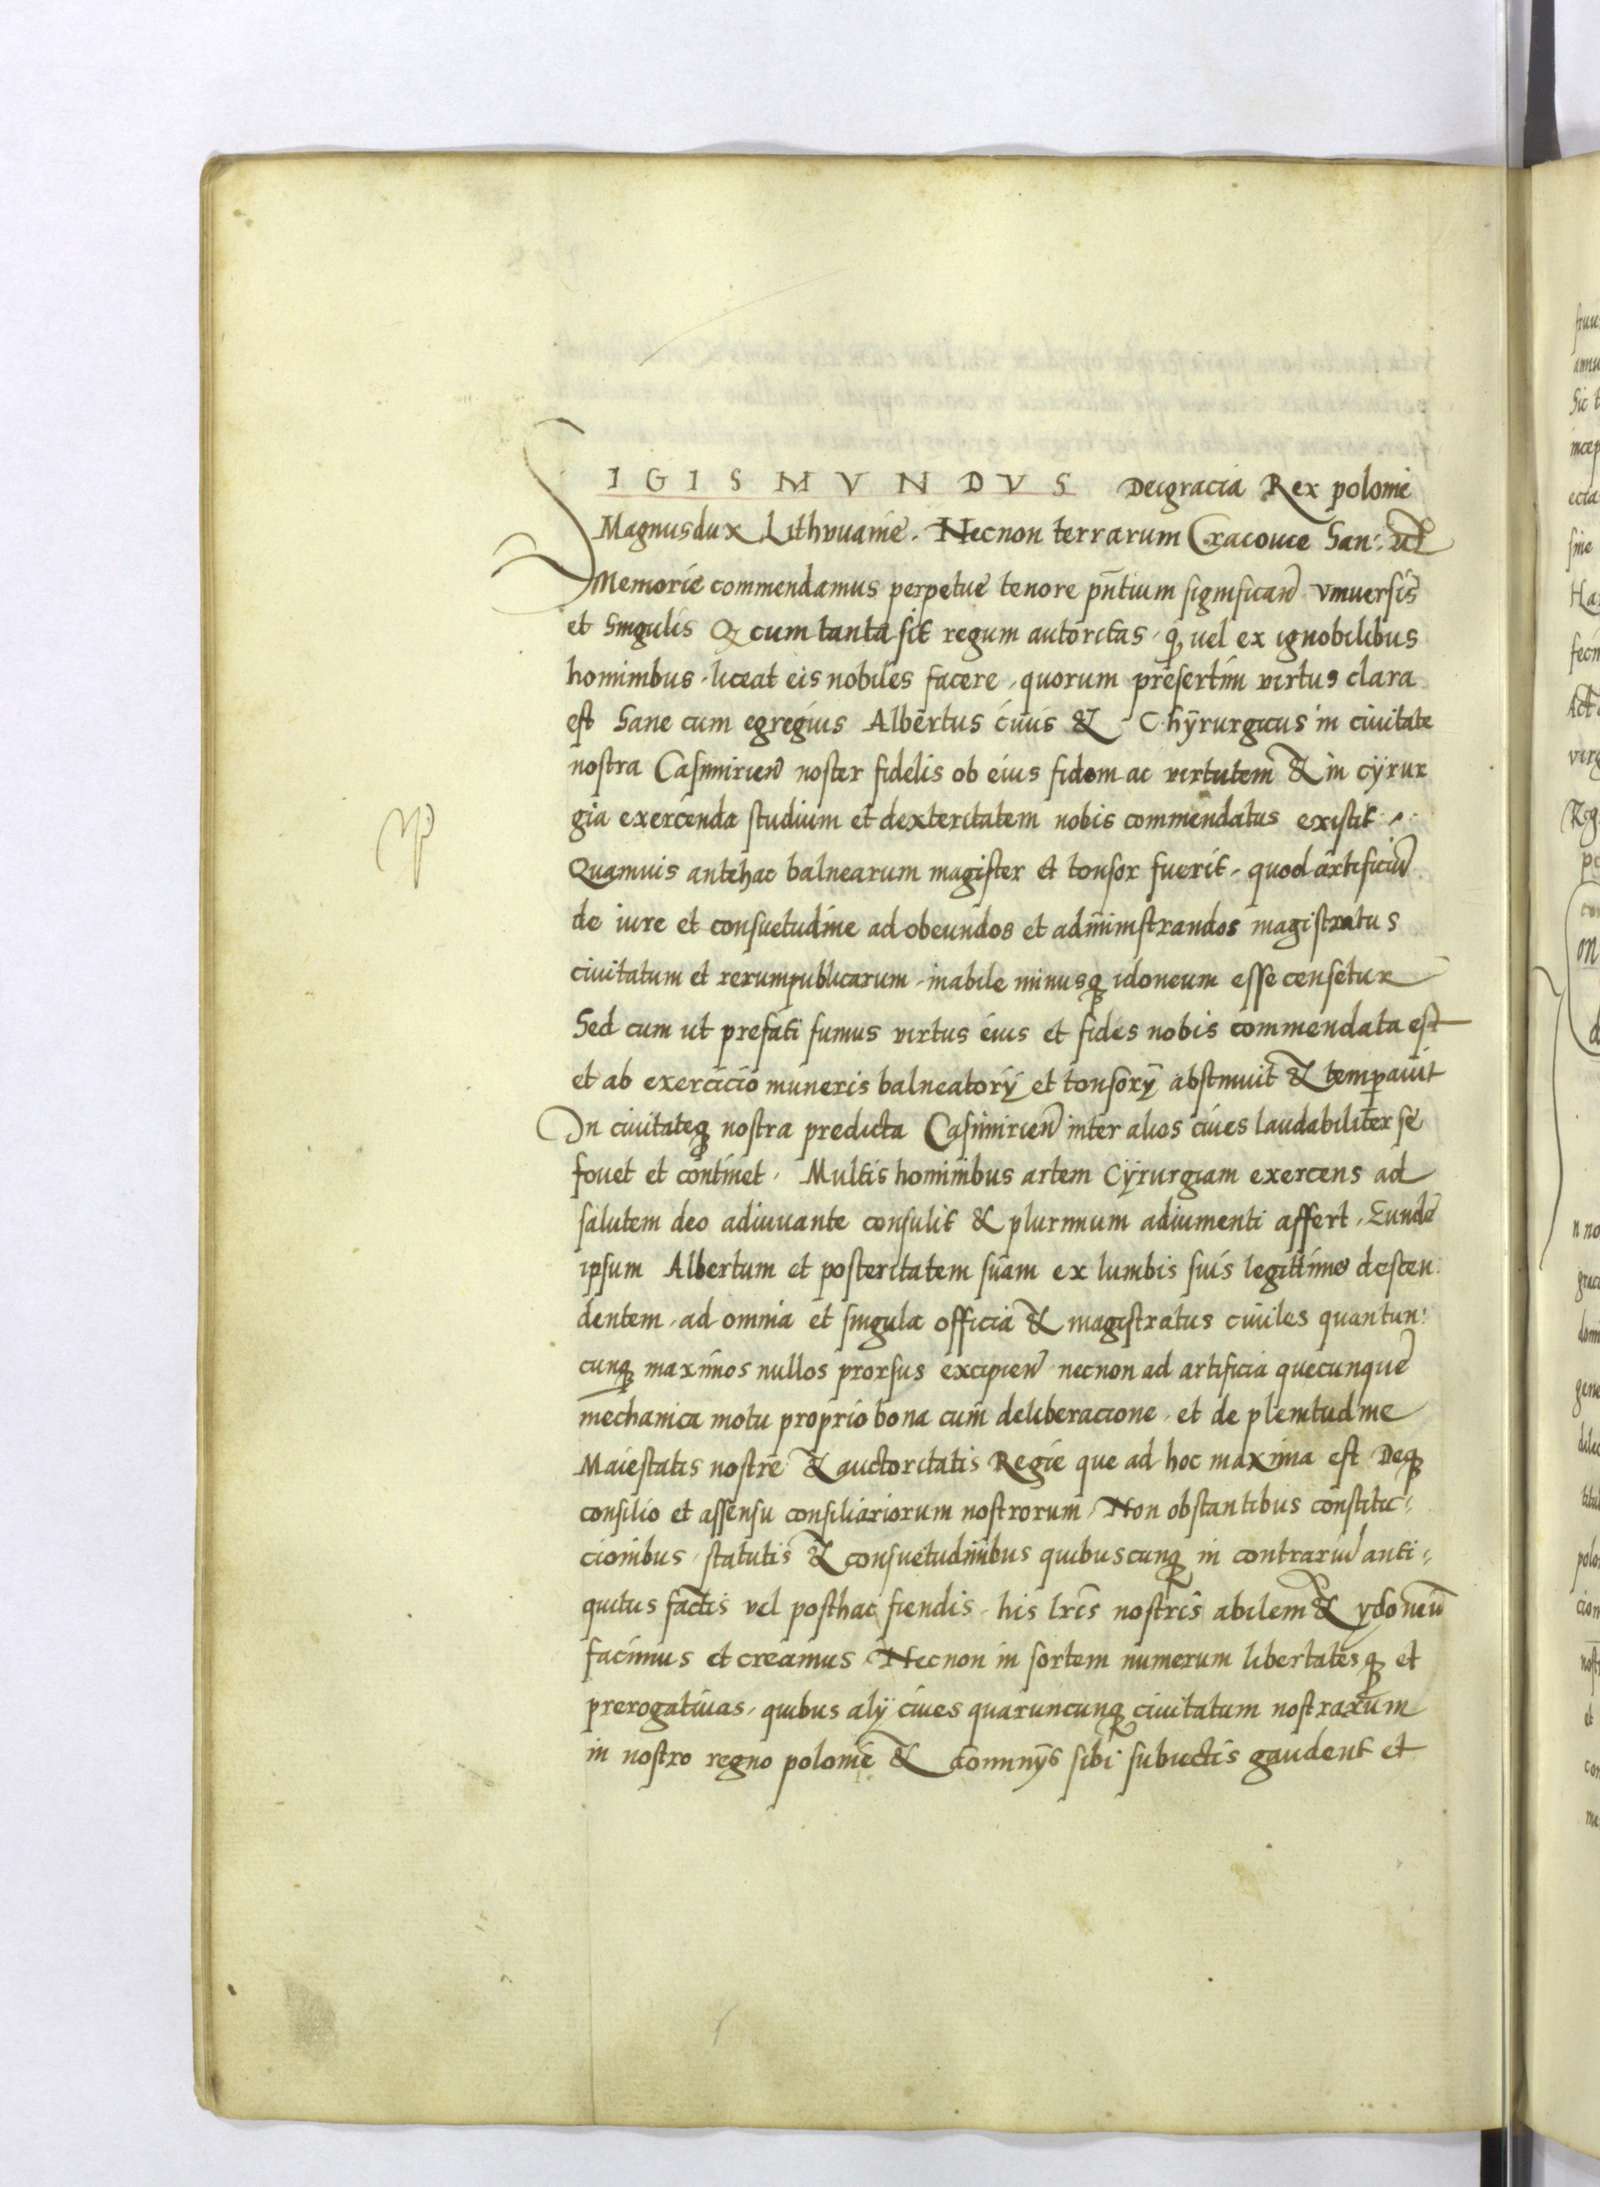 SIGISMVNDVS Deigracia Rex polonie
Magnusdux Lithvuanie. Necnon terrarum Cracouie San: etc
Memorie commendamus perpetue tenore pn̄tium significan̄ vniuersis
et singulis Q cum tanta sit regum autoritas, q̄ uel ex ignobilibus
hominibus, liceat eis nobiles facere, quorum presertim virtus clara
est Sane cum egregius Albertus ciuis & Chÿrurgicus in ciuitate
nostra Casimirien̄ noster fidelis ob eius fidem ac virtutem & in cÿrur
gia exercenda studium et dexteritatem nobis commendatus existit.
Quamuis antehac balnearum magister et tonsor fuerit, quod artificiū
de iure et consuetudine ad obeundos et administrandos magistratus
ciuitatum et rerumpublicarum, inabile minusq̄ idoneum esse censetur
Sed cum ut prefati sumus virtus eius et fides nobis commendata est
et ab exercicio muneris balneatorÿ et tonsorÿ abstinuit & temp̄auit
In ciuitateq̄ nostra predicta Casimirien̄ inter alios ciues laudabiliter se
fouet et continet. Multis hominibus artem Cÿrurgiam exercens ad
salutem deo adiuuante consulit & plurimum adiumenti affert, Eundē
ipsum Albertum et posteritatem suam ex lumbis suis legittime descen:
dentem, ad omnia et singula officia & magistratus ciuiles quantun:
cunq̄ maximos nullos prorsus excipien̄ necnon ad artificia quecunque
mechanica motu proprio bona cum deliberacione, et de plenitudine
Maiestatis nostre & auctoritatis Regie que ad hoc maxima est Deq̄
consilio et assensu consiliariorum nostrorum, Non obstantibus constitu:
cionibus, statutis & consuetudinibus quibuscunq̄ in contrariū anti:
quitus factis vel posthac fiendis, his lr̄is nostris abilem & ydoneū
facimus et creamus Necnon in sortem numerum libertatesq̄ et
prerogatiuas, quibus alÿ ciues quaruncunq̄ ciuitatum nostrarum
in nostro regno polonie & dominÿs sibi subiectis gaudent et